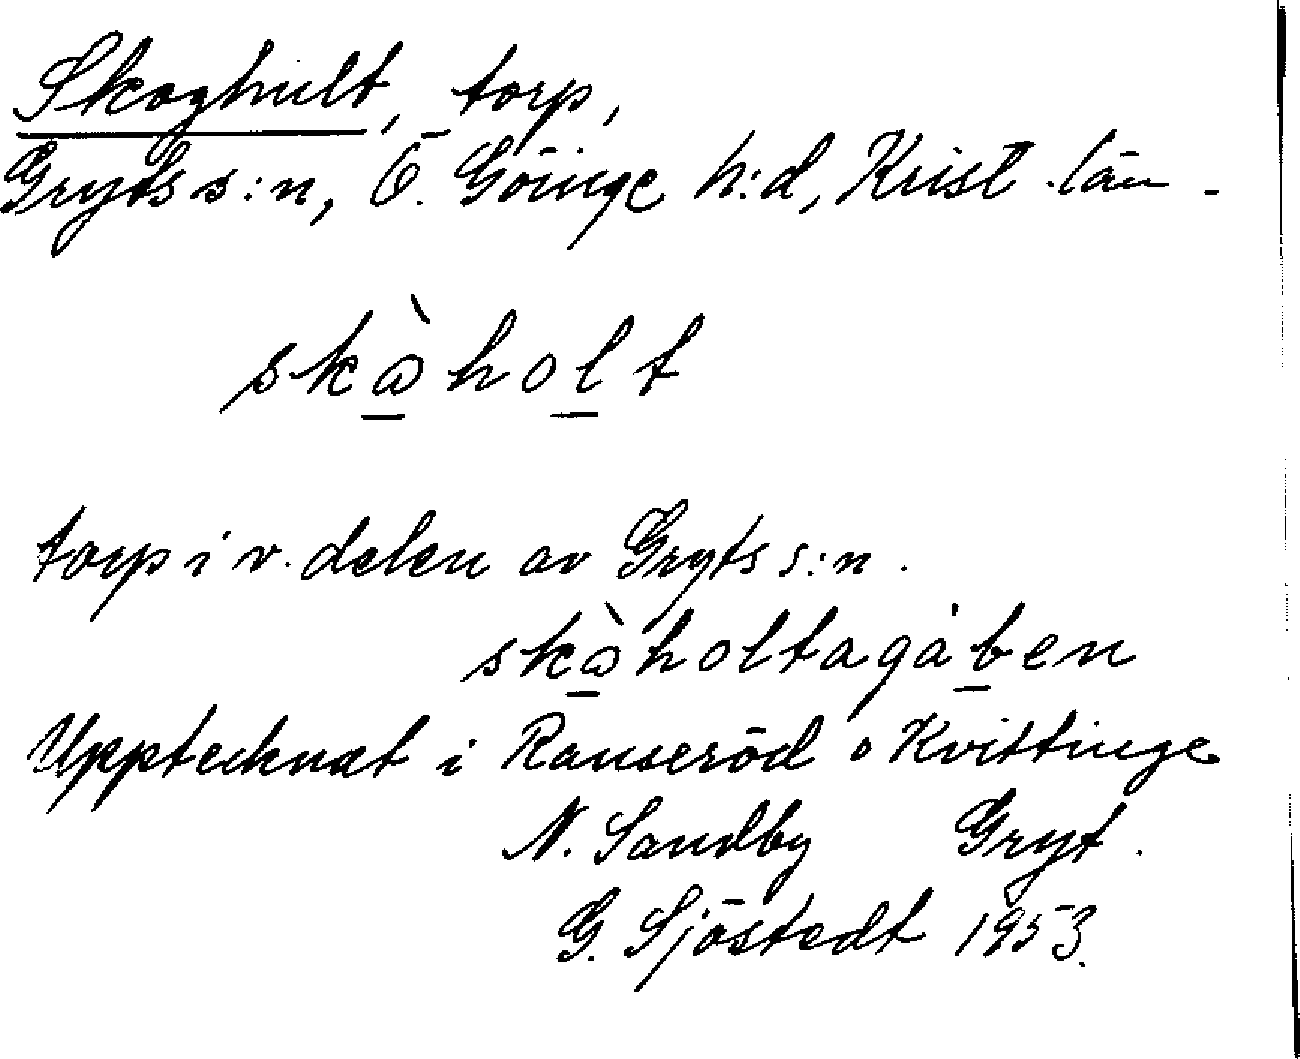 Skoghult, torp,
Gryts s:n, Ö. Göinge h:d, Krist. län.
skàholt
torp i v. delen av Gryts s:n.
skàholtagáben
Upptecknat i Ranseröd o Kvittinge
N. Sandby Gryt.
G. Sjöstedt 1953.